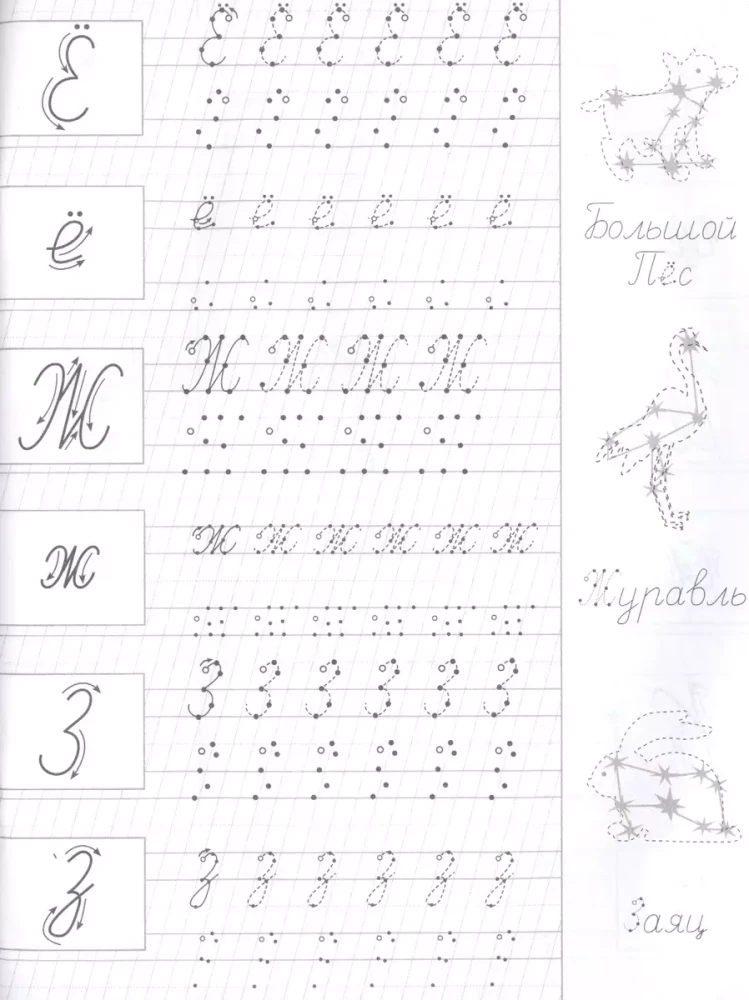 Ё Ё Ё Ё Ё Ё Ё
ё ё ё ё ё ё ё
Большой
Пёс
Ж Ж Ж Ж Ж
ж ж ж ж ж ж ж
Журавль
З З З З З З З
з з з з з з з
Заяц